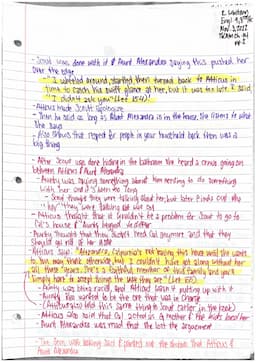 - Scout was done with it & Aunt Alexandra saying this pushed her over the edge
- "I whirled around, startled, then turned back to Atticus in time to catch his swift glance at her, but it was too late. I said "I didn't ask you!" (Lee 154)"
- Atticus made Scout apologize
- Then he said as long as Aunt Alexandra is in the house, she listens to what she says
- Also shows that respect for people in your household back then was a big thing
- After Scout was done hiding in the bathroom she heard a going on between Atticus & Aunt Alexandra
- Aunty was saying something about them needing to do something with her and it's been too long
- Scout thought they were talking about her, but later finds out who "her" they were talking about was Cal
- Atticus thought that it wouldn't be a problem for Scout to go to Cal's house & Aunty begged to differ
- Aunty thought that they didn't need Cal anymore and that they should get rid of her ASAP
- Atticus says "Alexandra, Calpurnia's not leaving this house until she wants to. You may think otherwise, but I couldn't have got along without her all these years. She's a faithful member of this family and you'll simply have to accept things the way they are" (Lee 155)
- Aunty was being racist and Atticus wasn't putting up with it
- Aunty Alex wanted to be the one that was in charge
- (Atticus told this same thing to Scout earlier in the book)
- Atticus also said that Cal acted as a mother & the kids loved her
- Aunt Alexandra was mad that she lost the argument